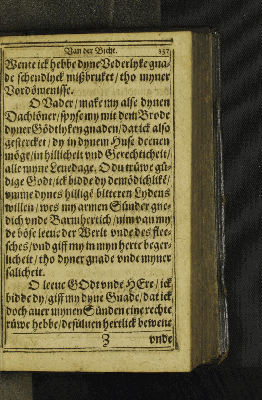 Van der Bicht. 157
Wente ick hebbe dyne Vederlyke gna-
de schendlyck mißbruket / tho myner
Vordömenisse.
O Vader / make my alse dynen
Dachlöner / spyse my mit dem Brode
dyner Gödtlyken gnaden / dat ick also
gestercket / dy in dynem Huse deenen
möge / in hillicheit vnd Gerechticheit /
alle myne Leuedage. O du trüwe gü-
dige Godt / ick bidde dy demödichlikē /
vmme dynes hillige bitteren Lydens
willen / wes my armen Sünder gne-
dich vnde Barmhertich / nim van my
de böse leeue der Werlt vnde des flee-
sches / vnd giff my in myn herte beger-
licheit / tho dyner gnade vnde myner
salicheit.
O leeue GOdt vnde HEre / ick
bidde dy / giff my dyne Gnade / dat ick
doch auer mynen Sünden eine rechte
rüwe hebbe / desüluen hertlick bewene
Z vnde